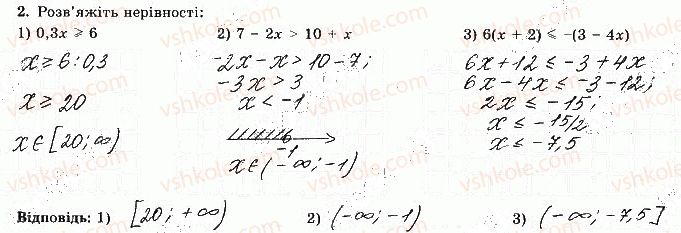 2. Розв'яжіть нерівності:
1) 0,3x ⩾ 6
x ≥ 6 : 0,3
x ≥ 20
x ∈ [20; ∞)
2) 7 − 2x > 10 + x
-2x - x > 10 - 7;
-3x > 3
x < -1
-1
x ∈ (-∞; -1)
3) 6(x + 2) ⩽ −(3 − 4x)
6x + 12 ≤ -3 + 4x
6x - 4x ≤ -3 - 12;
2x ≤ -15;
x ≤ -15/2
x ≤ -7,5
Відповідь: 1) [20; +∞) 2) (-∞; -1) 3) (-∞; -7,5]
vshkole.com